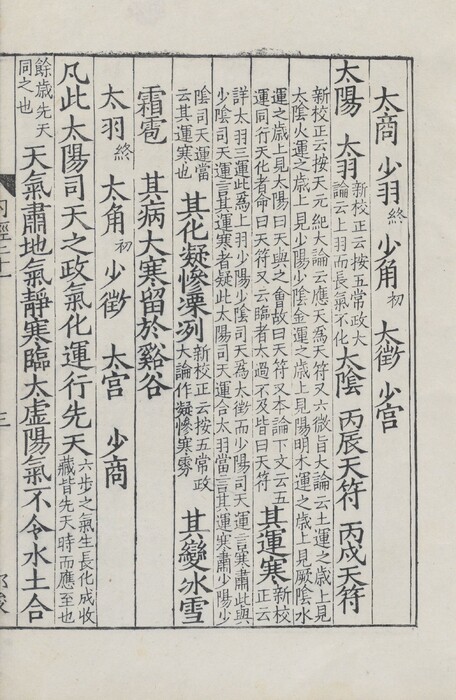 太商 少羽終 少角初 太徵 少宮
太陽 太羽
新校正云按五常政大
論云上羽而長氣不化
太陰 丙辰天符 丙戌天符
新校正云按天元紀大論云應天為天符又六微旨大論云土運之歲上見
太陰火運之歲上見少陽少陰金運之歲上見陽明木運之歲上見厥陰水
運之歲上見太陽曰天與之會故曰天符又本論下文云五
運同行天化者命曰天符又云臨者太過不及皆曰天符
其運寒
新校
正云
詳太羽三運此為上羽少陽少陰司天為太徵而少陽司天運言寒肅此與
少陰司天運言其運寒者疑此太陽司天運合太羽當言其運寒肅少陽少
陰司天運當
云其運寒也
其化凝慘凓冽
新校正云按五常政
大論作凝慘寒雰
其變冰雪
霜雹 其病大寒留於谿谷
太羽終 太角初 少徵 太宮 少商
凡此太陽司天之政氣化運行先天
六步之氣生長化成收
藏皆先天時而應至也
餘歲先天
同之也
天氣肅地氣靜寒臨太虛陽氣不令水土合
三